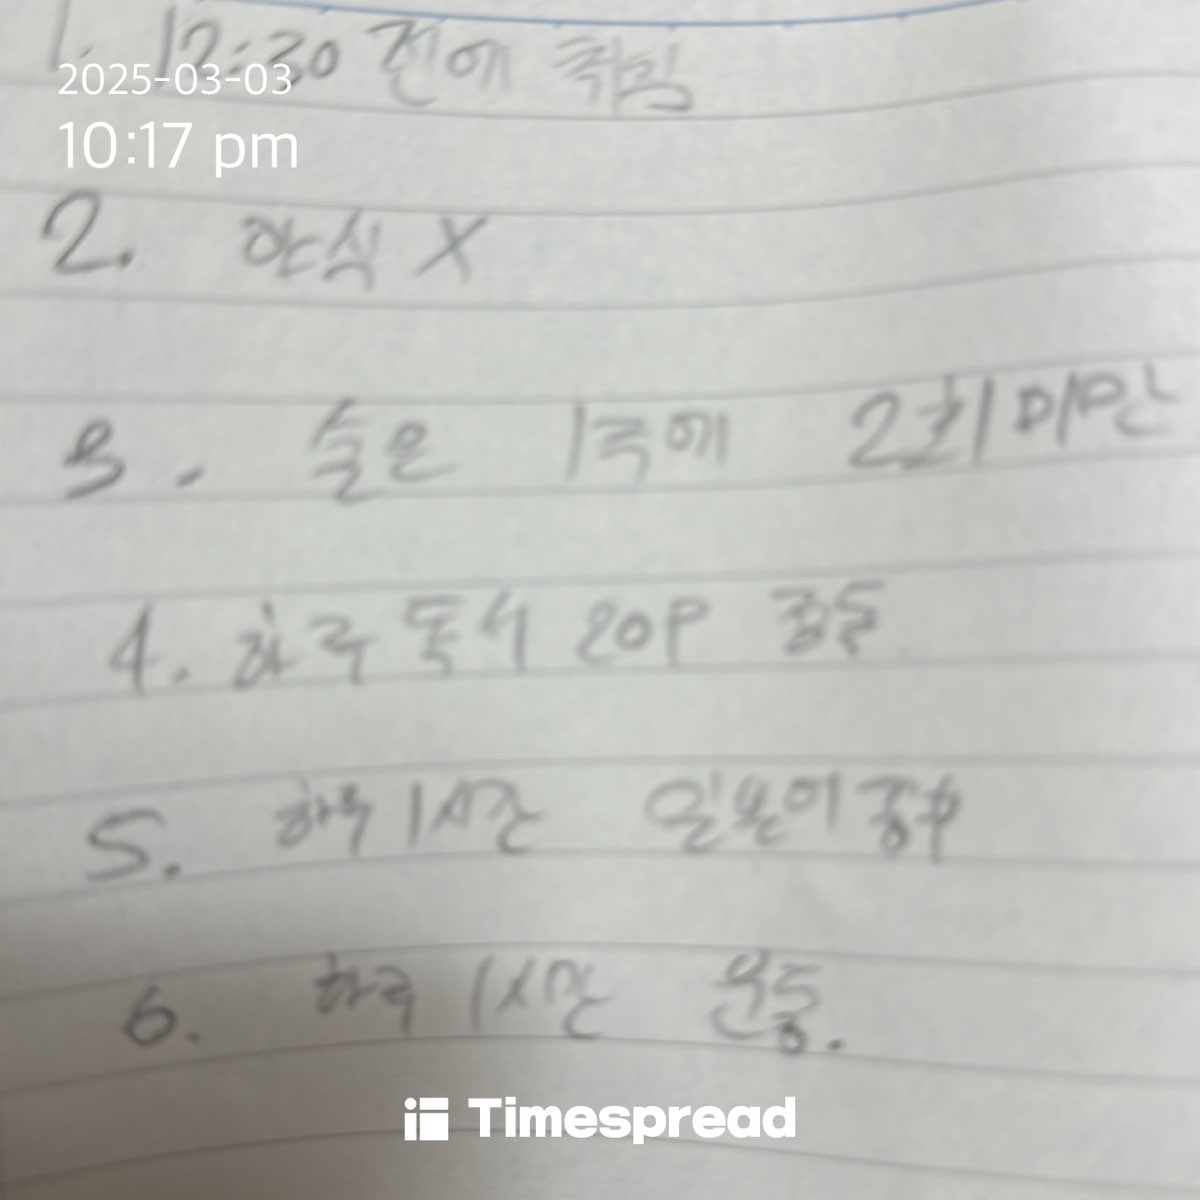 1. 12:30 전에 취침
2025-03-03
10:17 pm
2. 야식 X
3. 술은 1주에 2회 미만
4. 하루 독서 20P
5. 하루 1시간 일본어 공부
6. 하루 1시간 운동.
Timespread